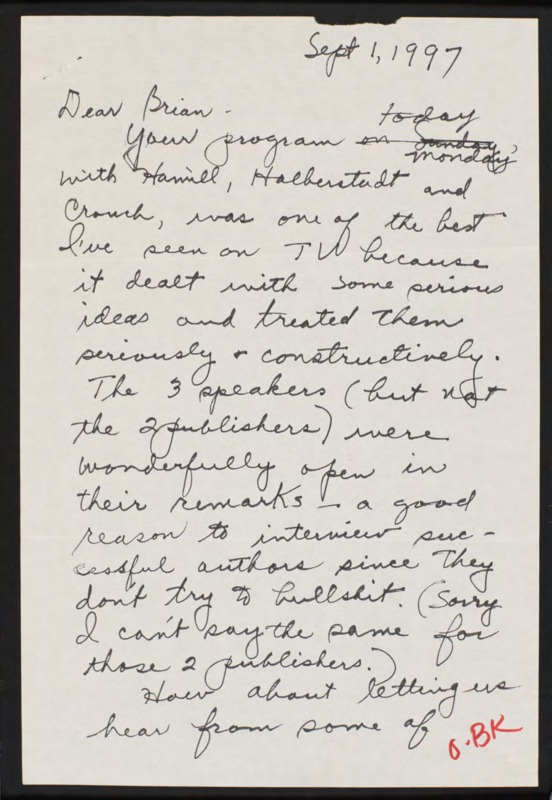 Sept 1, 1997
Dear Brian -
today
Your program on Sunday,
monday
with Hamill, Halberstadt and
Crouch, was one of the best
I've seen on TV because
it dealt with some serious
ideas and treated them
seriously + constructively.
The 3 speakers (but not
the 2 publishers) were
wonderfully open in
their remarks - a good
reason to interview suc-
cessful authors since They
don't try to bullshit. (Sorry
I can't say the same for
those 2 publishers.)
How about letting us
hear from some of
O.BK